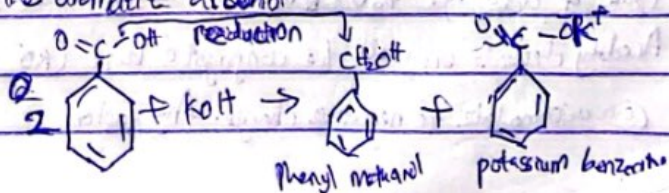 O=C-OH reduction CH₂OH O C-OK⁺
2 + KOH → +
Phenyl methanol potassium